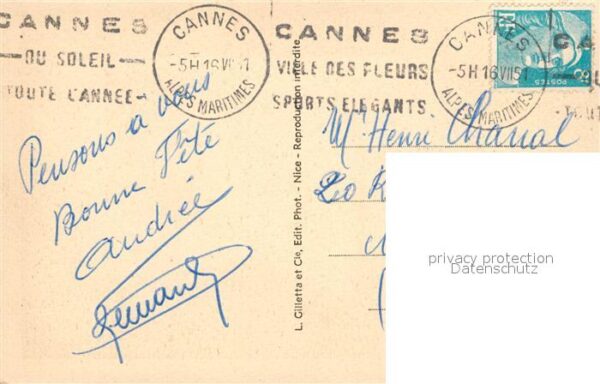 CANNES
DU SOLEIL
TOUTE L'ANNEE
CANNES
-5H 16 VII 51
ALPES MARITIMES
CANNES
VILLE DES FLEURS
SPORTS ELEGANTS
CANNES
-5H 16 VII 51
ALPES MARITIMES
POSTES
8F
CA
TOUT
Pensons à vous
Bonne Fête
Andrée
Fernand
L. Gilletta et Cie, Edit. Phot. - Nice - Reproduction interdite
Mr Henri Chanal
20 R
privacy protection
Datenschutz